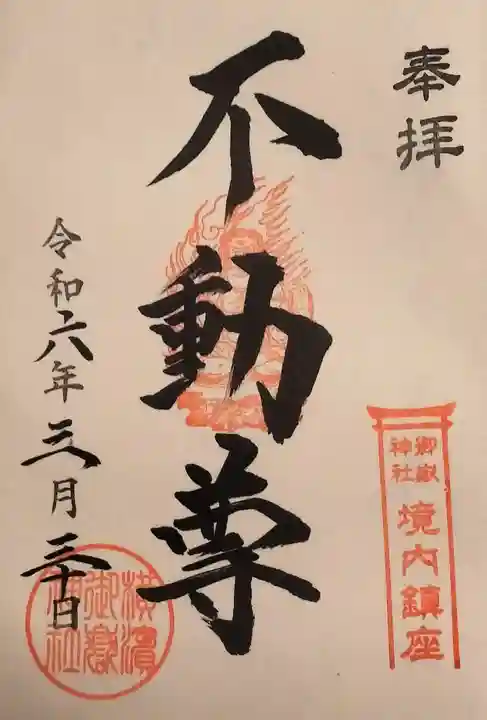 奉拝
不動尊
御嶽神社
境内鎮座
令和六年三月三十日
横濱御嶽神社